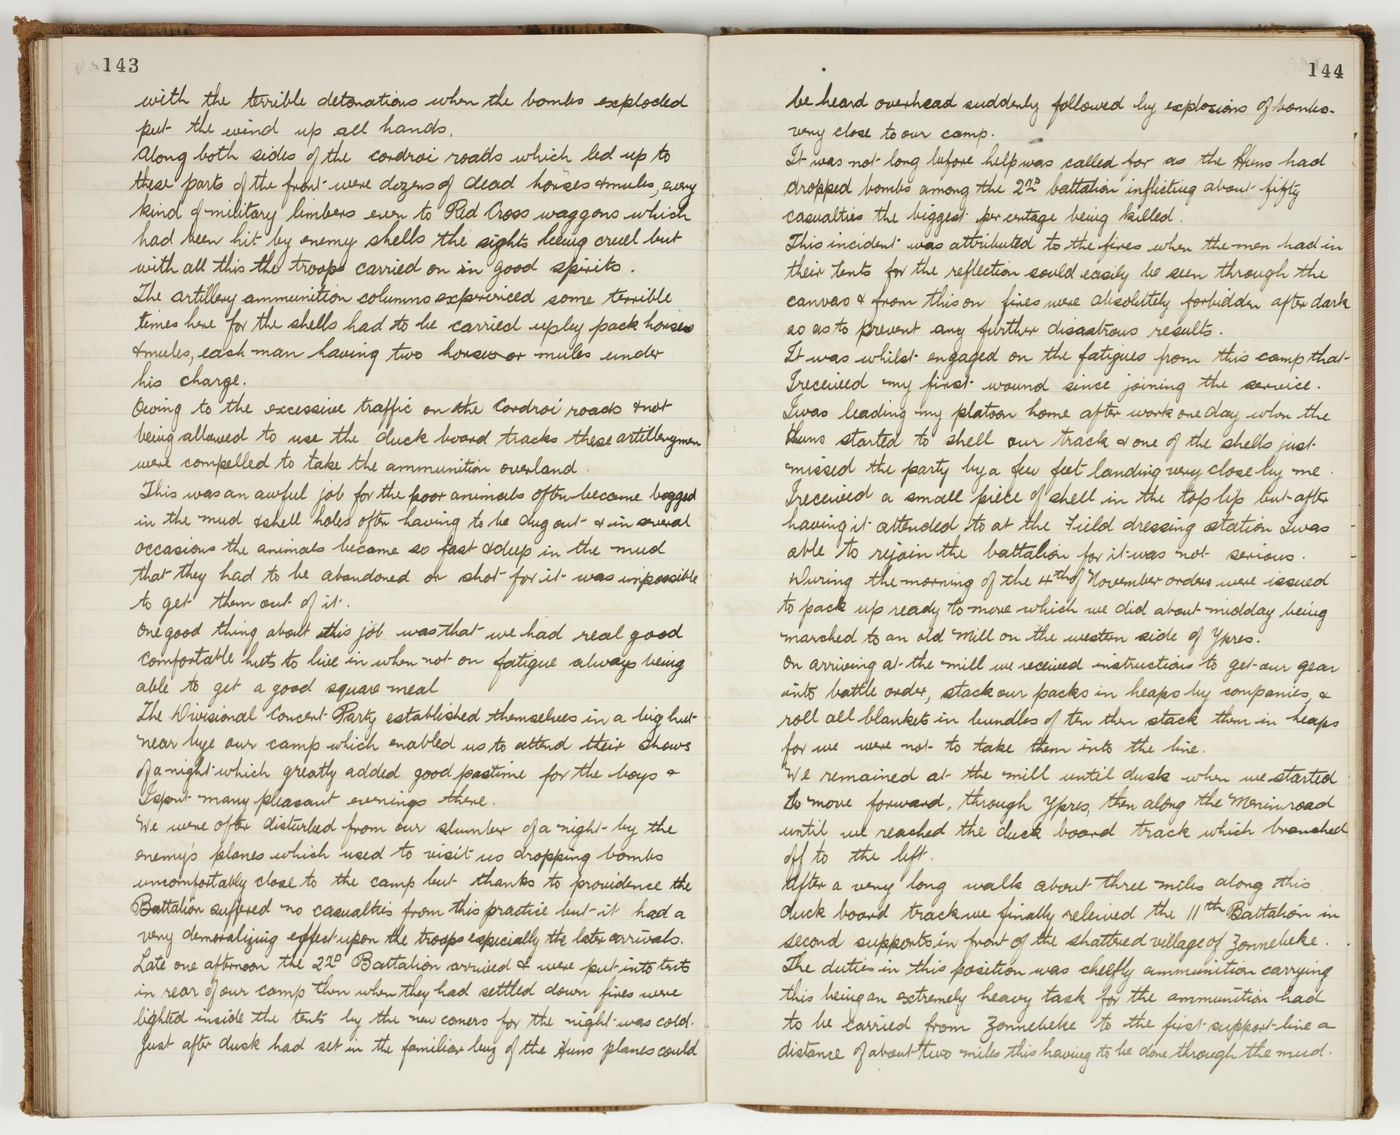 143
with the terrible detonations when the bombs exploded
put the wind up all hands.
Along both sides of the cordroi roads which led up to
these parts of the front were dozens of dead horses & mules, every
kind of military limbers even to Red Cross waggons which
had been hit by enemy shells the sights being cruel but
with all this the troops carried on in good spirits.
The artillery ammunition columns experiniced some terrible
times here for the shells had to be carried up by pack horses
& mules, each man having two horses or mules under
his charge.
Owing to the excessive traffic on the cordroi roads & not
being allowed to use the duck board tracks these artillerymen
were compelled to take the ammunition overland.
This was an awful job for the poor animals often became bogged
in the mud & shell holes often having to be dug out & in several
occasions the animals became so fast & deep in the mud
that they had to be abandoned or shot for it was impossible
to get them out of it.
One good thing about this job was that we had real good
comfortable huts to live in when not on fatigue always being
able to get a good square meal
The Divisional Concert Party established themselves in a big hut
near bye our camp which enabled us to attend their shows
of a night which greatly added good pastime for the boys &
I spent many pleasant evenings there.
We were often disturbed from our slumber of a night by the
enemy's planes which used to visit us dropping bombs
uncomfortably close to the camp but thanks to providence the
Battalion suffered no casualties from this practice but it had a
very demoralizing effect upon the troops especially the later arrivals.
Late one afternoon the 2nd Battalion arrived & were put into tents
in rear of our camp then when they had settled down fires were
lighted inside the tents by the new comers for the night was cold.
Just after dusk had set in the familiar buz of the Huns planes could
144
be heard overhead suddenly followed by explosions of bombs
very close to our camp.
It was not long before help was called for as the Huns had
dropped bombs among the 2nd battalion inflicting about fifty
casualties the biggest per centage being killed.
This incident was attributed to the fires when the men had in
their tents for the reflection could easily be seen through the
canvas & from this on fires were absolutely forbidden after dark
so as to prevent any further disastrous results.
It was whilst engaged on the fatigues from this camp that
I received my first wound since joining the service.
I was leading my platoon home after work one day when the
Huns started to shell our track & one of the shells just
missed the party by a few feet landing very close by me.
I received a small piece of shell in the top lip but after
having it attended to at the Field dressing station I was
able to rejoin the battalion for it was not serious.
During the morning of the 4th of November orders were issued
to pack up ready to move which we did about midday being
marched to an old mill on the western side of Ypres.
On arriving at the mill we received instructions to get our gear
into battle order, stack our packs in heaps by companies, &
roll all blankets in bundles of ten then stack them in heaps
for we were not to take them into the line.
We remained at the mill until dusk when we started
to move forward, through Ypres, then along the Menin road
until we reached the duck board track which branched
off to the left.
After a very long walk about three miles along this
duck board track we finally releived the 11th Battalion in
second supports in front of the shattered village of Zonnebeke.
The duties in this position was cheifly ammunition carrying
this being an extremely heavy task for the ammunition had
to be carried from Zonnebeke to the first support line a
distance of about two miles this having to be done through the mud.